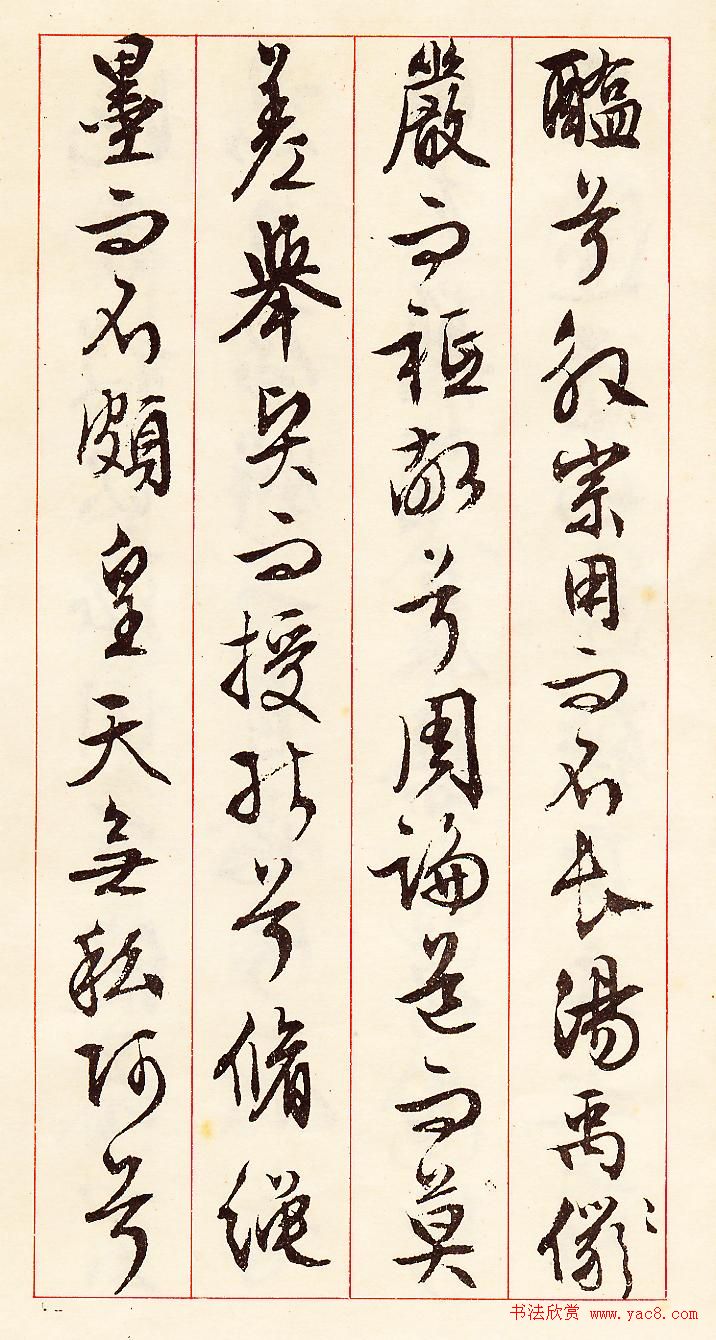 醢兮殷宗用而不長湯禹儼
嚴而祗敬兮周論道而莫
差舉賢而授能兮脩繩
墨而不頗皇天無私阿兮
书法欣赏 www.yac8.com